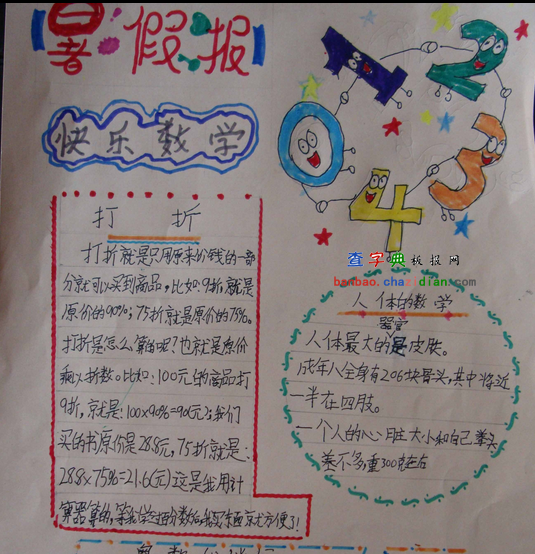 暑假报
快乐数学
0 1 2 3 4
打 折
打折就是只用原来价钱的一部
分就可以买到商品,比如:9折就是
原价的90%;75折就是原价的75%。
打折是怎么算的呢?也就是原价
乘以折数。比如:100元的商品打
9折,就是:100×90%=90(元);我们
买的书原价是28.8元,75折就是:
28.8×75%=21.6(元)这是我用计
算器算的,等我学
方便了!
查字典板报网
banbao.chazidian.com
人体的数学
器官
人体最大的是皮肤。
成年人全身有206块骨头,其中将近
一半在四肢。
一个人的心脏大小和自己拳头
差不多重300克左右